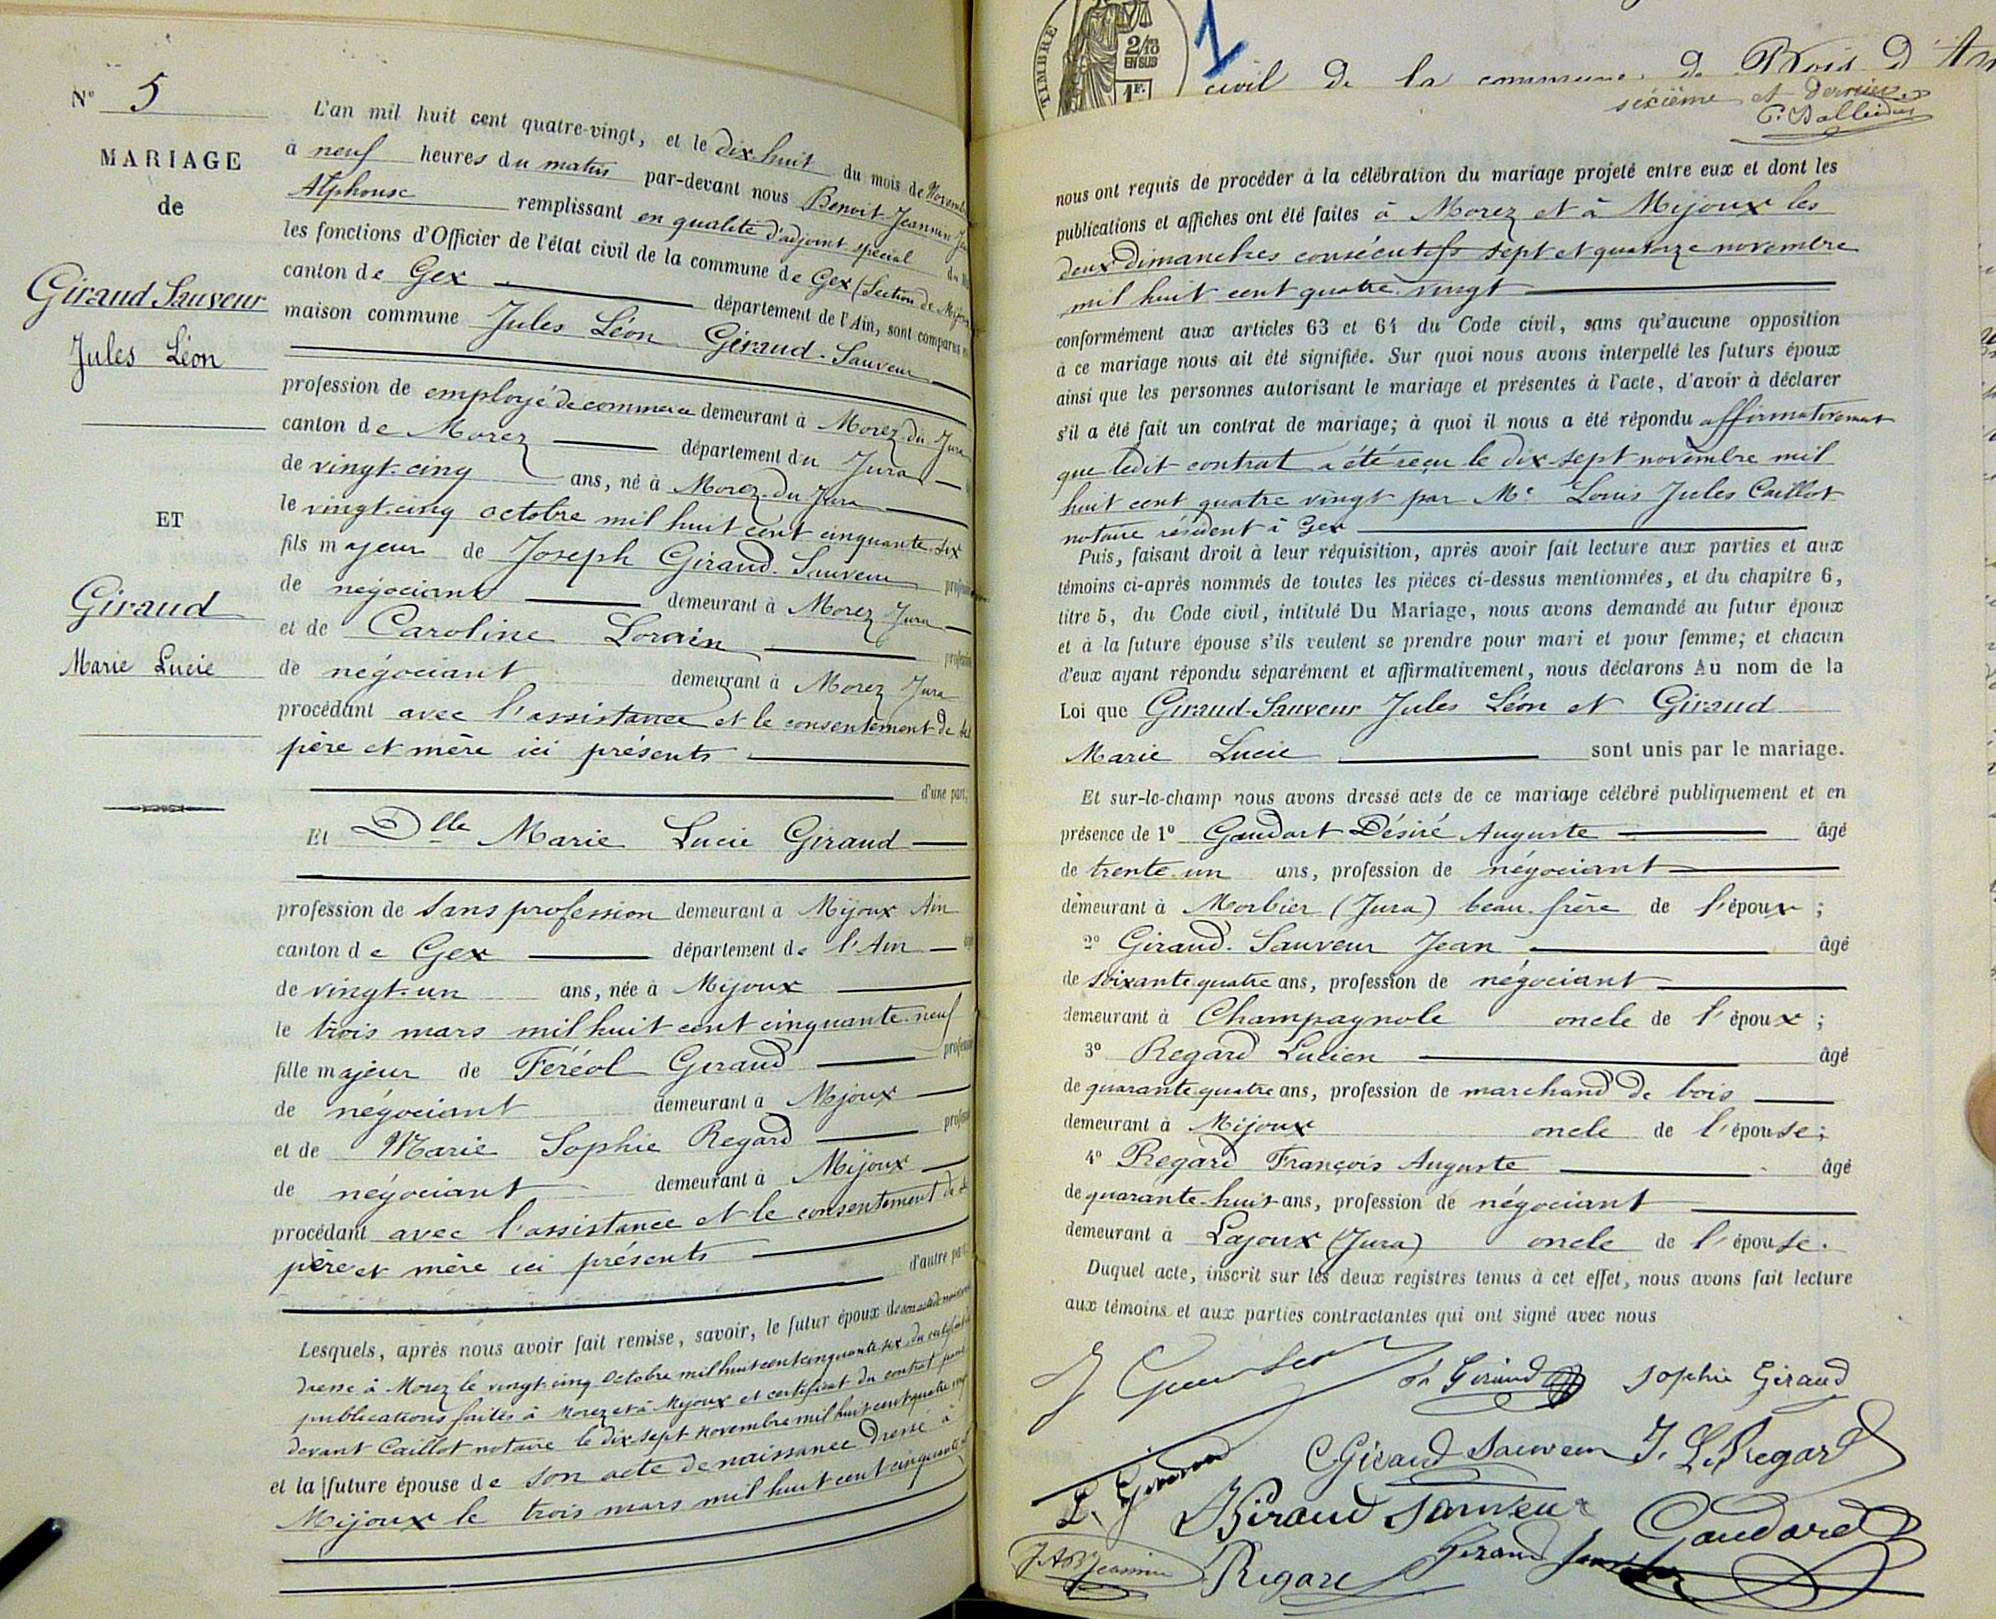 N° 5
MARIAGE
de
Giraud Sauveur
Jules Léon
ET
Giraud
Marie Lucie
L'an mil huit cent quatre-vingt, et le dix huit du mois de Novembre
à neuf heures du matin par-devant nous Benoit-Jeannin
Alphonse remplissant en qualité d'adjoint spécial
les fonctions d'Officier de l'état civil de la commune de Gex (Section de Mijoux
canton de Gex département de l'Ain, sont comparus
maison commune Jules Léon Giraud-Sauveur
profession de employé de commerce demeurant à Morez du Jura
canton de Morez département du Jura
de vingt-cinq ans, né à Morez du Jura
le vingt-cinq octobre mil huit cent cinquante six
fils majeur de Joseph Giraud-Sauveur
de négociant demeurant à Morez Jura
et de Caroline Lorain
de négociant demeurant à Morez Jura
procédant avec l'assistance et le consentement de ses
père et mère ici présents
d'une part,
Et Dlle Marie Lucie Giraud
profession de Sans profession demeurant à Mijoux Ain
canton de Gex département de l'Ain
de vingt-un ans, née à Mijoux
le trois mars mil huit cent cinquante-neuf
fille majeur de Féréol Giraud
de négociant demeurant à Mijoux
et de Marie Sophie Regard
de négociant demeurant à Mijoux
procédant avec l'assistance et le consentement de
père et mère ici présents
d'autre part
Lesquels, après nous avoir fait remise, savoir, le futur époux de son acte de naissance
dressé à Morez le vingt-cinq Octobre mil huit cent cinquante six, du certificat
publications faites à Morez et à Mijoux et certificat du contrat
devant Caillot notaire le dix-sept novembre mil huit cent quatre
et la future épouse de son acte de naissance dressé à
Mijoux le trois mars mil huit cent cinquante
TIMBRE
2/10
EN SUS
1F.
1
civil de la commune de Bois d'Am
sixième et dernier
nous ont requis de procéder à la célébration du mariage projeté entre eux et dont les
publications et affiches ont été faites à Morez et à Mijoux les
deux dimanches consécutifs sept et quatorze novembre
mil huit cent quatre vingt
conformément aux articles 63 et 64 du Code civil, sans qu'aucune opposition
à ce mariage nous ait été signifiée. Sur quoi nous avons interpellé les futurs époux
ainsi que les personnes autorisant le mariage et présentes à l'acte, d'avoir à déclarer
s'il a été fait un contrat de mariage; à quoi il nous a été répondu affirmativement
que ledit contrat a été reçu le dix-sept novembre mil
huit cent quatre vingt par Me Louis Jules Caillot
notaire résident à Gex
Puis, faisant droit à leur réquisition, après avoir fait lecture aux parties et aux
témoins ci-après nommés de toutes les pièces ci-dessus mentionnées, et du chapitre 6,
titre 5, du Code civil, intitulé Du Mariage, nous avons demandé au futur époux
et à la future épouse s'ils veulent se prendre pour mari et pour femme; et chacun
d'eux ayant répondu séparément et affirmativement, nous déclarons Au nom de la
Loi que Giraud-Sauveur Jules Léon et Giraud
Marie Lucie sont unis par le mariage.
Et sur-le-champ nous avons dressé acte de ce mariage célébré publiquement et en
présence de 1° Gaudart Désiré Auguste âgé
de trente-un ans, profession de négociant
demeurant à Morbier (Jura) beau-frère de l'époux;
2° Giraud-Sauveur Jean âgé
de soixante quatre ans, profession de négociant
demeurant à Champagnole oncle de l'époux;
3° Regard Lucien âgé
de quarante quatre ans, profession de marchand de bois
demeurant à Mijoux oncle de l'épouse;
4° Regard François Auguste âgé
de quarante-huit ans, profession de négociant
demeurant à Lajoux (Jura) oncle de l'épouse.
Duquel acte, inscrit sur les deux registres tenus à cet effet, nous avons fait lecture
aux témoins et aux parties contractantes qui ont signé avec nous
Giraud Sophie Giraud
L. Giraud C Giraud Sauveur J. L. Regard
Giraud Sauveur Gaudard
Jeannin Regard Giraud